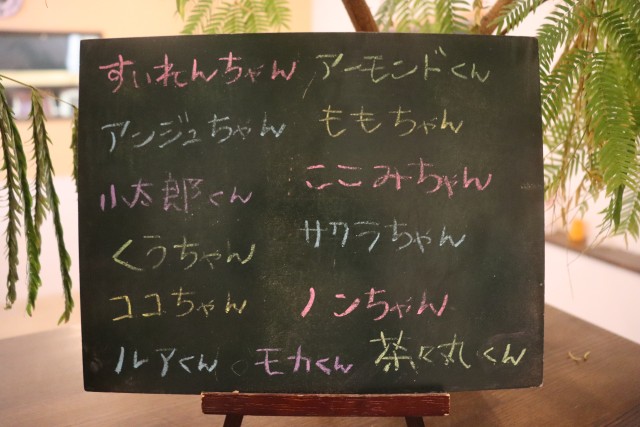 すいれんちゃん アーモンドくん
アンジュちゃん ももちゃん
小太郎くん ここみちゃん
くうちゃん サクラちゃん
ココちゃん ノンちゃん
ルアくん。モカくん 茶々丸くん